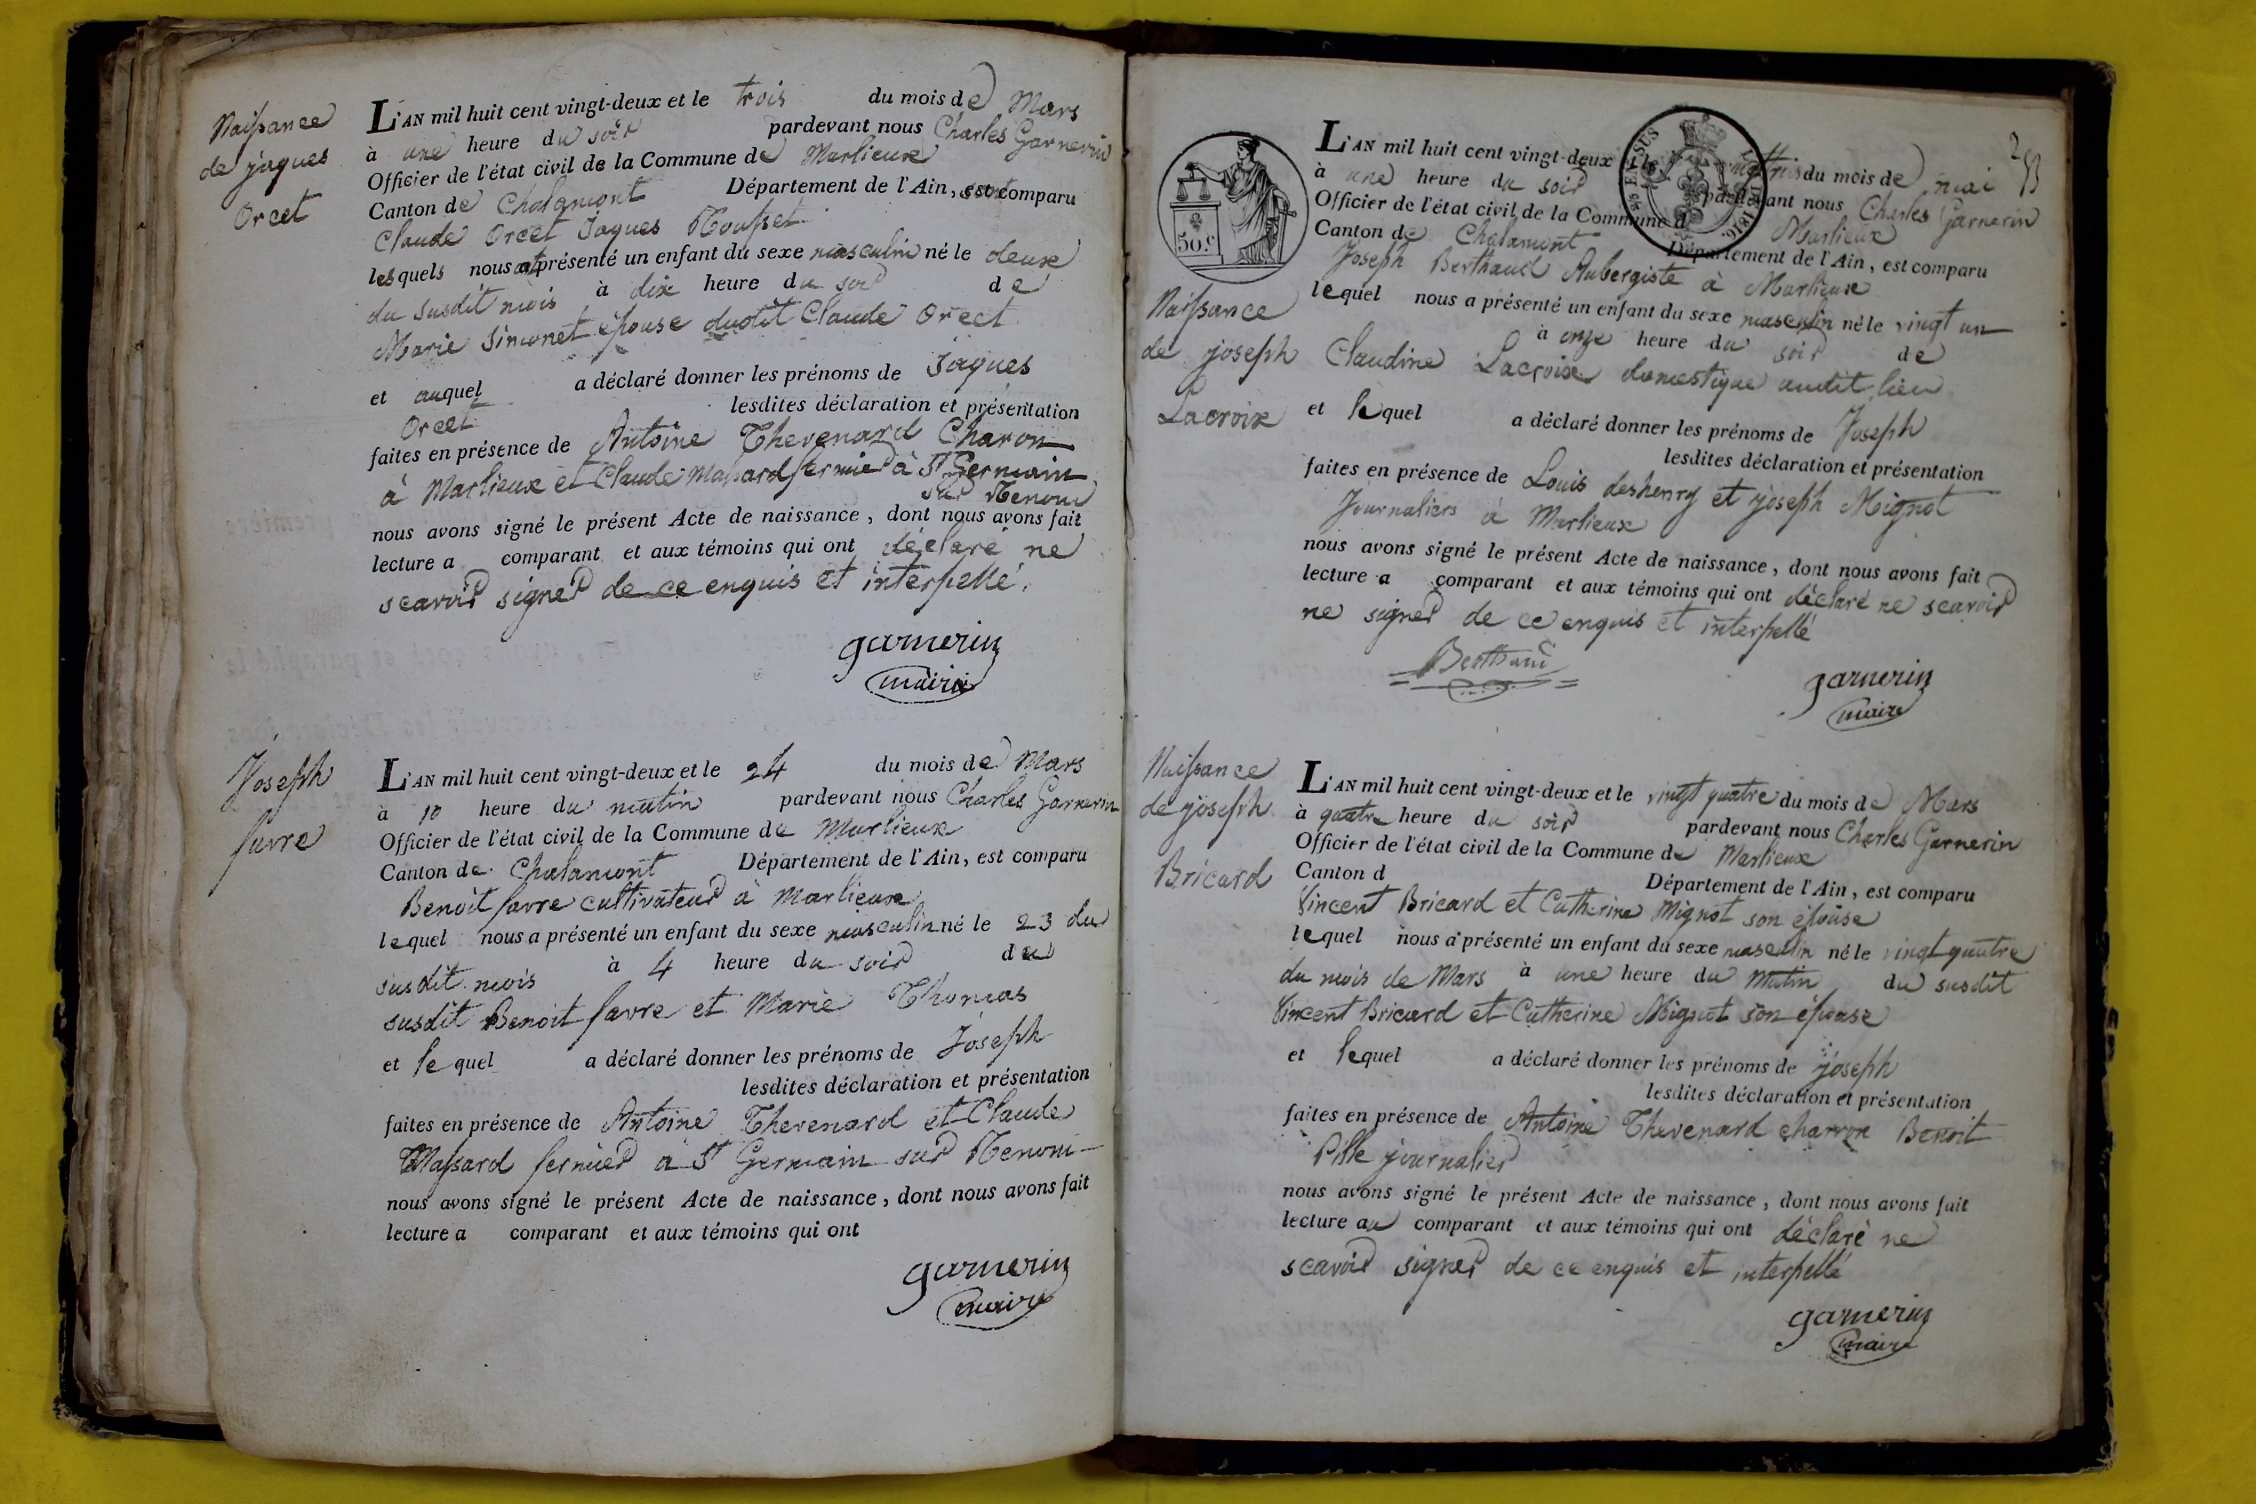 Naissance
de jaques
Orcet
L'AN mil huit cent vingt-deux et le trois du mois de Mars
à une heure du soir pardevant nous Charles Garnerin
Officier de l'état civil de la Commune de Marlieux
Canton de Chalamont Département de l'Ain, sont comparu
Claude Orcet Jaques Rousset
lesquels nous ont présenté un enfant du sexe masculin né le deux
du susdit mois à dix heure du soir de
Marie Simonet épouse dudit Claude Orcet
et auquel a déclaré donner les prénoms de Jaques
Orcet lesdites déclaration et présentation
faites en présence de Antoine Thevenard Charon
à Marlieux et Claude Massard fermier à St Germain
sur Renom
nous avons signé le présent Acte de naissance, dont nous avons fait
lecture a comparant et aux témoins qui ont déclaré ne
scavoir signer de ce enquis et interpellé.
garnerin
maire
Joseph
favre
L'AN mil huit cent vingt-deux et le 24 du mois de Mars
à 10 heure du matin pardevant nous Charles Garnerin
Officier de l'état civil de la Commune de Marlieux
Canton de Chalamont Département de l'Ain, est comparu
Benoit favre cultivateur à Marlieux
lequel nous a présenté un enfant du sexe masculin né le 23 du
susdit mois à 4 heure du soir du
susdit Benoit favre et Marie Thomas
et lequel a déclaré donner les prénoms de Joseph
lesdites déclaration et présentation
faites en présence de Antoine Thevenard et Claude
Massard fermier à St Germain sur Renom
nous avons signé le présent Acte de naissance, dont nous avons fait
lecture a comparant et aux témoins qui ont
garnerin
maire
50.c
EN SUS
L. DE 1816.
Naissance
de joseph
Lacroix
L'AN mil huit cent vingt-deux et le du mois de mai
à une heure du soir pardevant nous Charles Garnerin
Officier de l'état civil de la Commune d Marlieux
Canton de Chalamont Département de l'Ain, est comparu
Joseph Berthaud Aubergiste à Marlieux
lequel nous a présenté un enfant du sexe masculin né le vingt un
à onze heure du soir de
Claudine Lacroix domestique audit lieu
et lequel a déclaré donner les prénoms de Joseph
lesdites déclaration et présentation
faites en présence de Louis deshenry et joseph Mignot
Journaliers à Marlieux
nous avons signé le présent Acte de naissance, dont nous avons fait
lecture a comparant et aux témoins qui ont déclaré ne scavoir
ne signer de ce enquis et interpellé
Berthaud
garnerin
maire
Naissance
de joseph
Bricard
L'AN mil huit cent vingt-deux et le vingt quatre du mois de Mars
à quatre heure du soir pardevant nous Charles Garnerin
Officier de l'état civil de la Commune de Marlieux
Canton d Département de l'Ain, est comparu
Vincent Bricard et Catherine Mignot son épouse
lequel nous a présenté un enfant du sexe masculin né le vingt quatre
du mois de Mars à une heure du Matin du susdit
Vincent Bricard et Catherine Mignot son épouse
et lequel a déclaré donner les prénoms de joseph
lesdites déclaration et présentation
faites en présence de Antoine Thevenard charron Benoit
Pille journalier
nous avons signé le présent Acte de naissance, dont nous avons fait
lecture au comparant et aux témoins qui ont déclaré ne
scavoir signer de ce enquis et interpellé
garnerin
maire